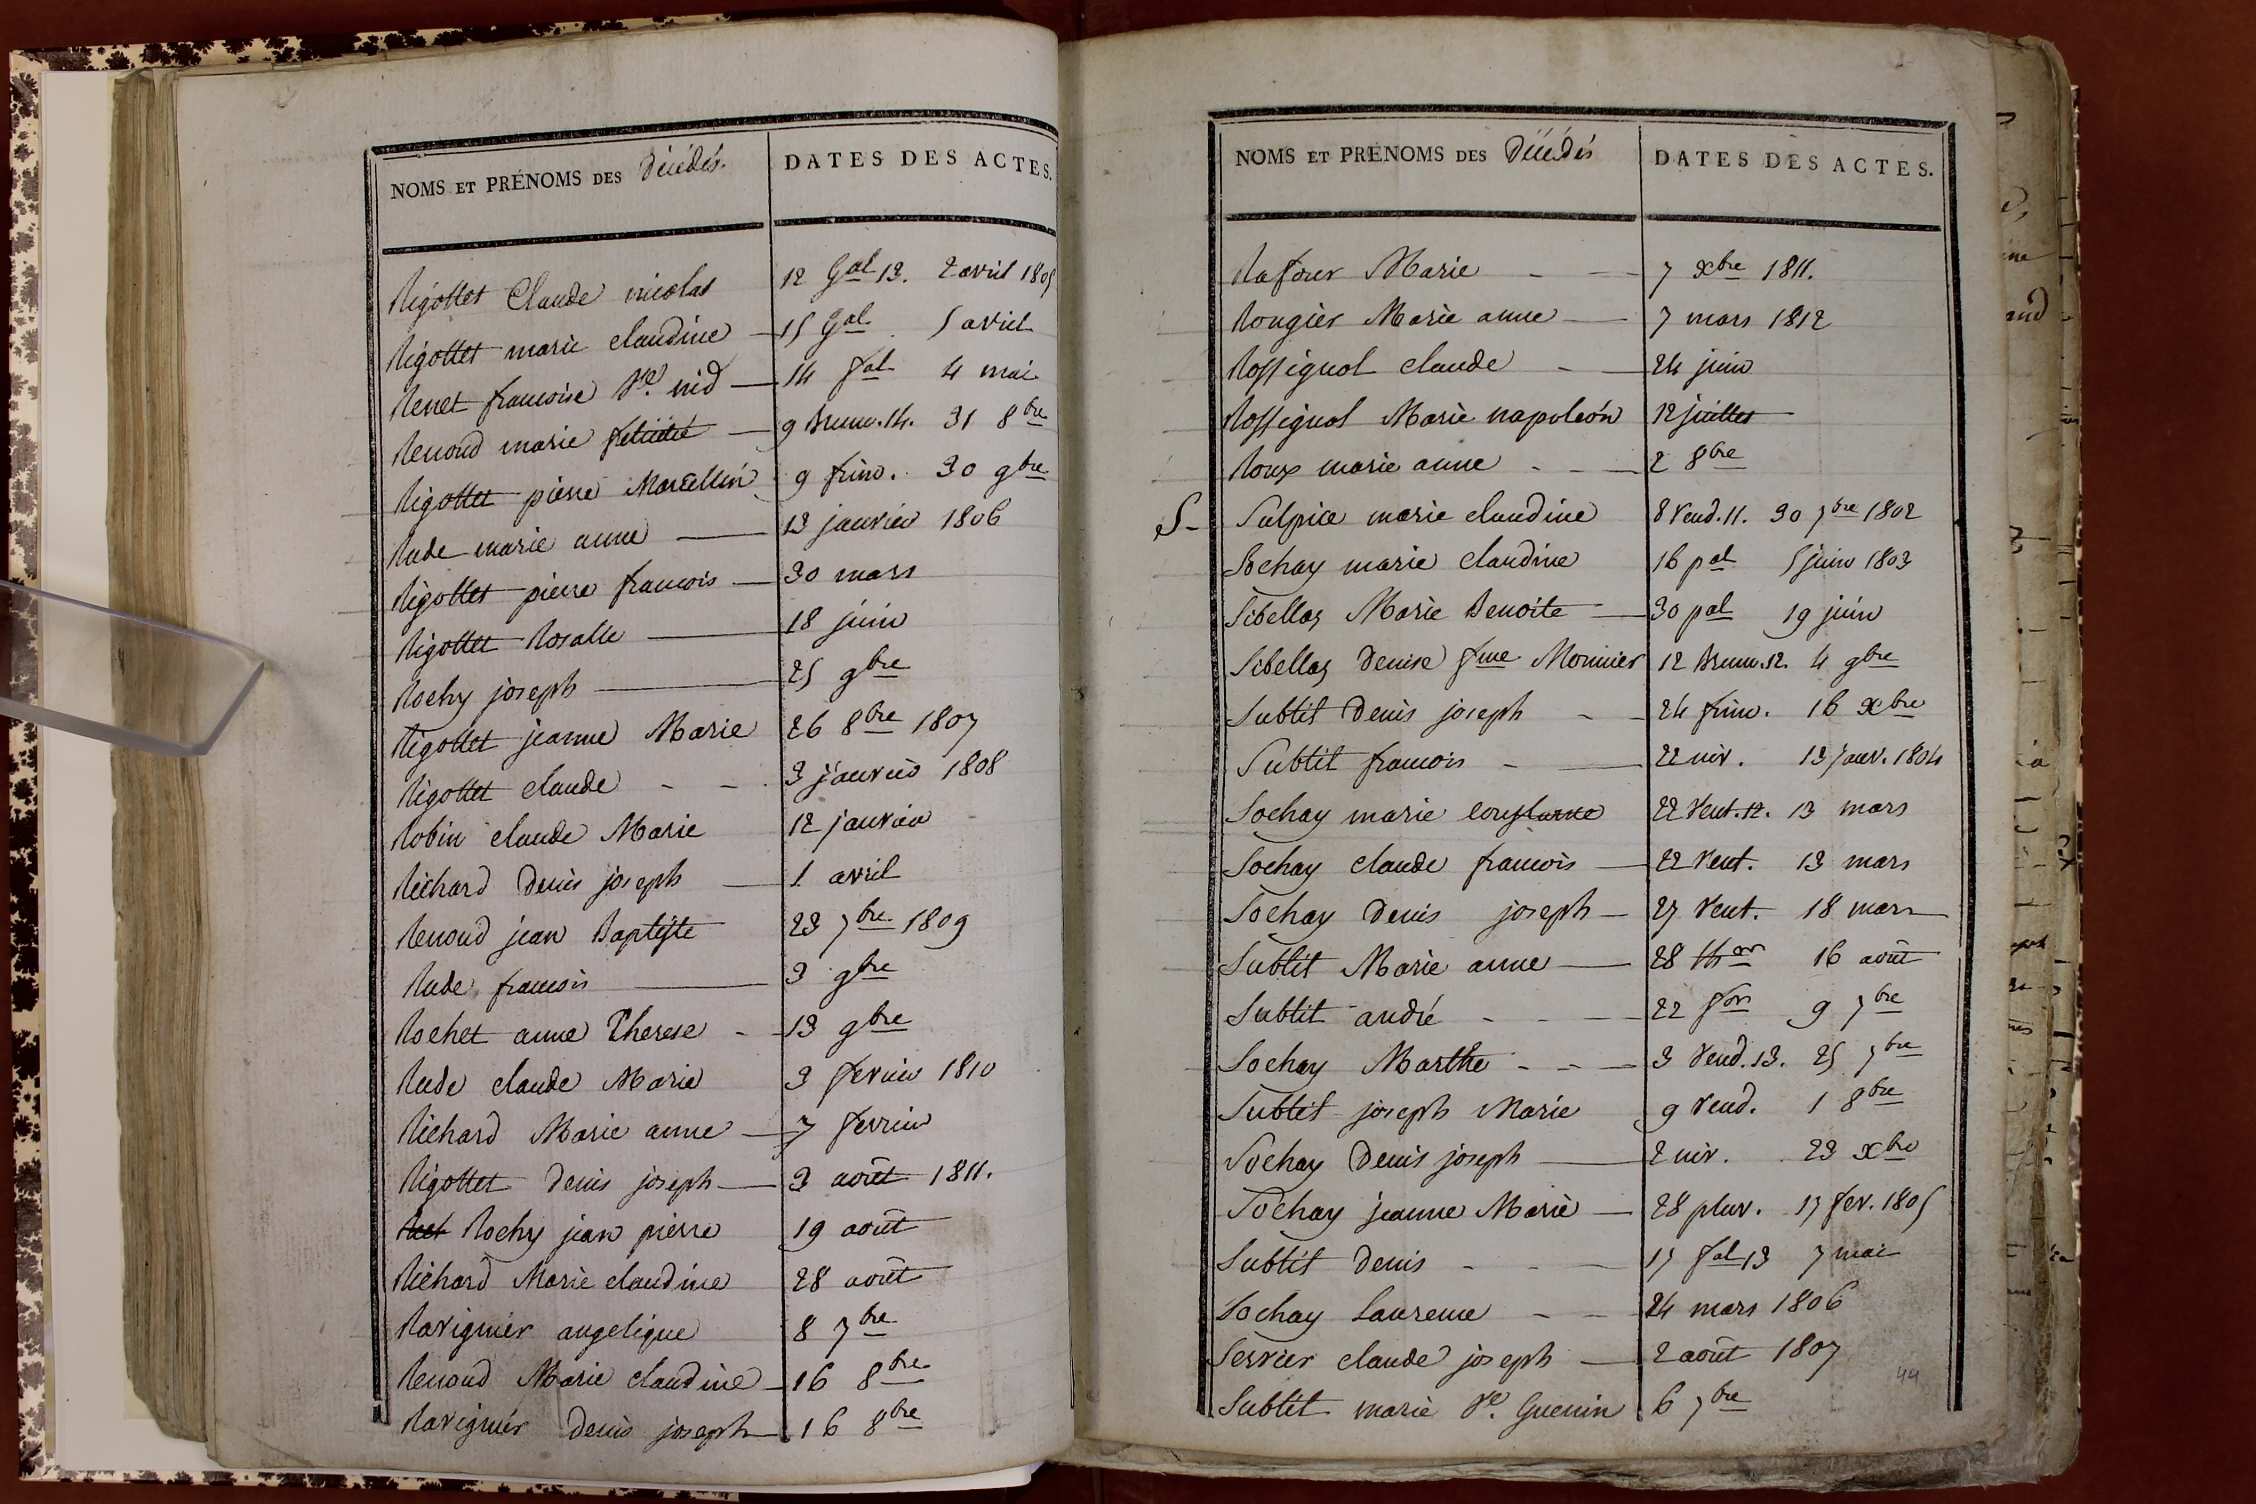 NOMS ET PRÉNOMS DES Décédés. DATES DES ACTES.
Rigollet Claude nicolas 12 Gal 13. 2 avril 1805
Rigollet marie claudine 15 Gal 5 avril
Renet francoise Ve. nid 14 fal 4 mai
Renoud marie felicité 9 Brum. 14. 31 8bre
Rigollet pierre Marcellin 9 frim. 30 9bre
Rude marie anne 13 janvier 1806
Rigollet pierre francois 30 mars
Rigollet Rosalie 18 juin
Rochy joseph 25 9bre
Rigollet jeanne Marie 26 8bre 1807
Rigollet claude 3 janvier 1808
Robin claude Marie 12 janvier
Richard Denis joseph 1 avril
Renoud jean Baptiste 23 7bre 1809
Rude francois 3 9bre
Rochet anne Therese 13 9bre
Rude claude Marie 3 fevrier 1810
Richard Marie anne 7 fevrier
Rigollet Denis joseph 3 août 1811.
Rochy jean pierre 19 août
Richard Marie claudine 28 août
Ravignier angelique 8 7bre
Renoud Marie claudine 16 8bre
Ravignier Denis joseph 16 8bre
NOMS ET PRÉNOMS DES Décédés DATES DES ACTES.
Rafour Marie 7 xbre 1811.
Rougier Marie anne 7 mars 1812
Rossignol claude 24 juin
Rossignol Marie napoléon 12 juillet
Roux marie anne 2 8bre
S- Sulpice marie claudine 8 Vend. 11. 30 7bre 1802
Sochay marie claudine 16 pal 5 juin 1803
Sibellas Marie Benoite 30 pal 19 juin
Sibellas Denise fme Monnier 12 Brum. 12. 4 9bre
Subtil Denis joseph 24 frim. 16 xbre
Subtil francois 22 niv. 13 janv. 1804
Sochay marie constance 22 Vent. 12. 13 mars
Sochay claude francois 22 Vent. 13 mars
Sochay Denis joseph 27 Vent. 18 mars
Subtil Marie anne 28 thor 16 août
Subtil andré 22 for 9 7bre
Sochay Marthe 3 Vend. 13. 25 7bre
Subtil joseph Marie 9 Vend. 1 8bre
Sochay Denis joseph 2 niv. 23 xbre
Sochay jeanne Marie 28 pluv. 17 fev. 1805
Subtil Denis 17 fal 13 7 mai
Sochay Laurence 24 mars 1806
Servier claude joseph 2 août 1807
Subtil marie Ve. Guenin 6 7bre
44